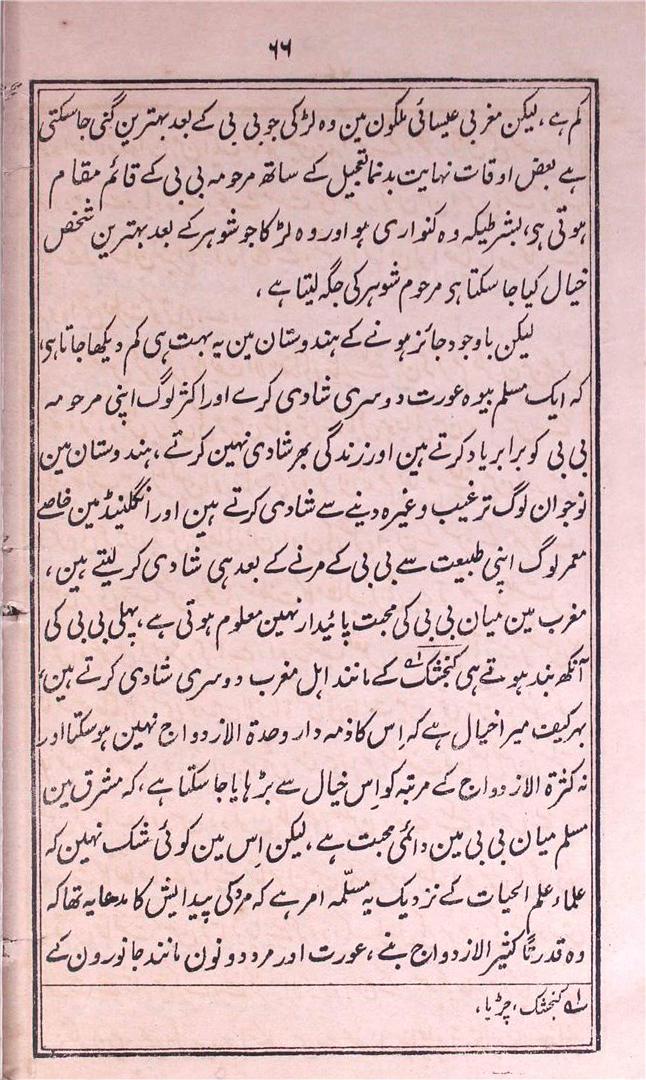 ۶۶
کم ہے، لیکن مغربی عیسائی ملکون مین وہ لڑکی جو بی بی کے بعد بہترین گنی جاسکتی
ہے بعض اوقات نہایت بدنما تعجیل کے ساتھ مرحومہ بی بی کے قائم مقام
ہوتی ہی، بشرطیکہ وہ کنواری ہو اور وہ لڑکا جو شوہر کے بعد بہترین شخص
خیال کیا جا سکتا ہی مرحوم شوہر کی جگہ لیتا ہے ،
لیکن باوجود جائز ہونے کے ہندوستان مین یہ بہت ہی کم دیکھا جاتا ہی،
کہ ایک مسلم بیوہ عورت دوسری شادی کرے اور اکثر لوگ اپنی مرحومہ
بی بی کو برابر یاد کرتے ہین اور زندگی بھر شادی نہین کرتے ، ہندوستان مین
نوجوان لوگ ترغیب وغیرہ دینے سے شادی کرتے ہین اور انگلینڈ مین خاصے
معمر لوگ اپنی طبیعت سے بی بی کے مرنے کے بعد ہی شادی کر لیتے ہین ،
مغرب مین میان بی بی کی محبت پائیدار نہین معلوم ہوتی ہے ، پہلی بی بی کی
آنکھ بند ہوتے ہی کنجشک۱ کے مانند اہل مغرب دوسری شادی کرتے ہین،
بہرکیف میرا خیال ہے کہ اِس کا ذمہ دار وحدۃ الازدواج نہین ہو سکتا اور
نہ کثرۃ الازدواج کے مرتبہ کو اِس خیال سے بڑھایا جا سکتا ہے ، کہ مشرق مین
مسلم میان بی بی مین دائمی محبت ہے ، لیکن اِس مین کوئی شک نہین کہ
علماء علم الحیات کے نزدیک یہ مسلّمہ امر ہے کہ مرد کی پیدایش کا مدعا یہ تھا کہ
وہ قدرتاً کثیر الازدواج بنے ، عورت اور مرد دونون مانند جانورون کے
۱ کنجشک ، چڑیا ،